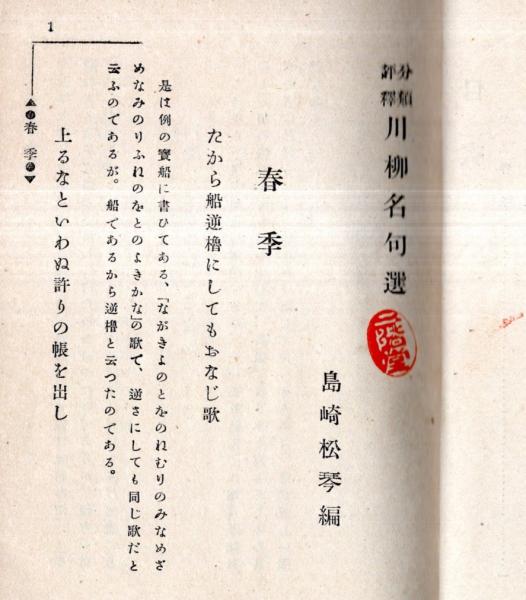 分類
評釋
川柳名句選
二階堂
島崎松琴編
春季
たから船逆櫓にしてもおなじ歌
是は例の寶船に書ひてある、「ながきよのとをのねむりのみなめざ
めなみのりふねのをとのよきかな」の歌で、逆さにしても同じ歌だと
云ふのであるが。船であるから逆櫓と云つたのである。
上るなといわぬ許りの帳を出し
の春季
1